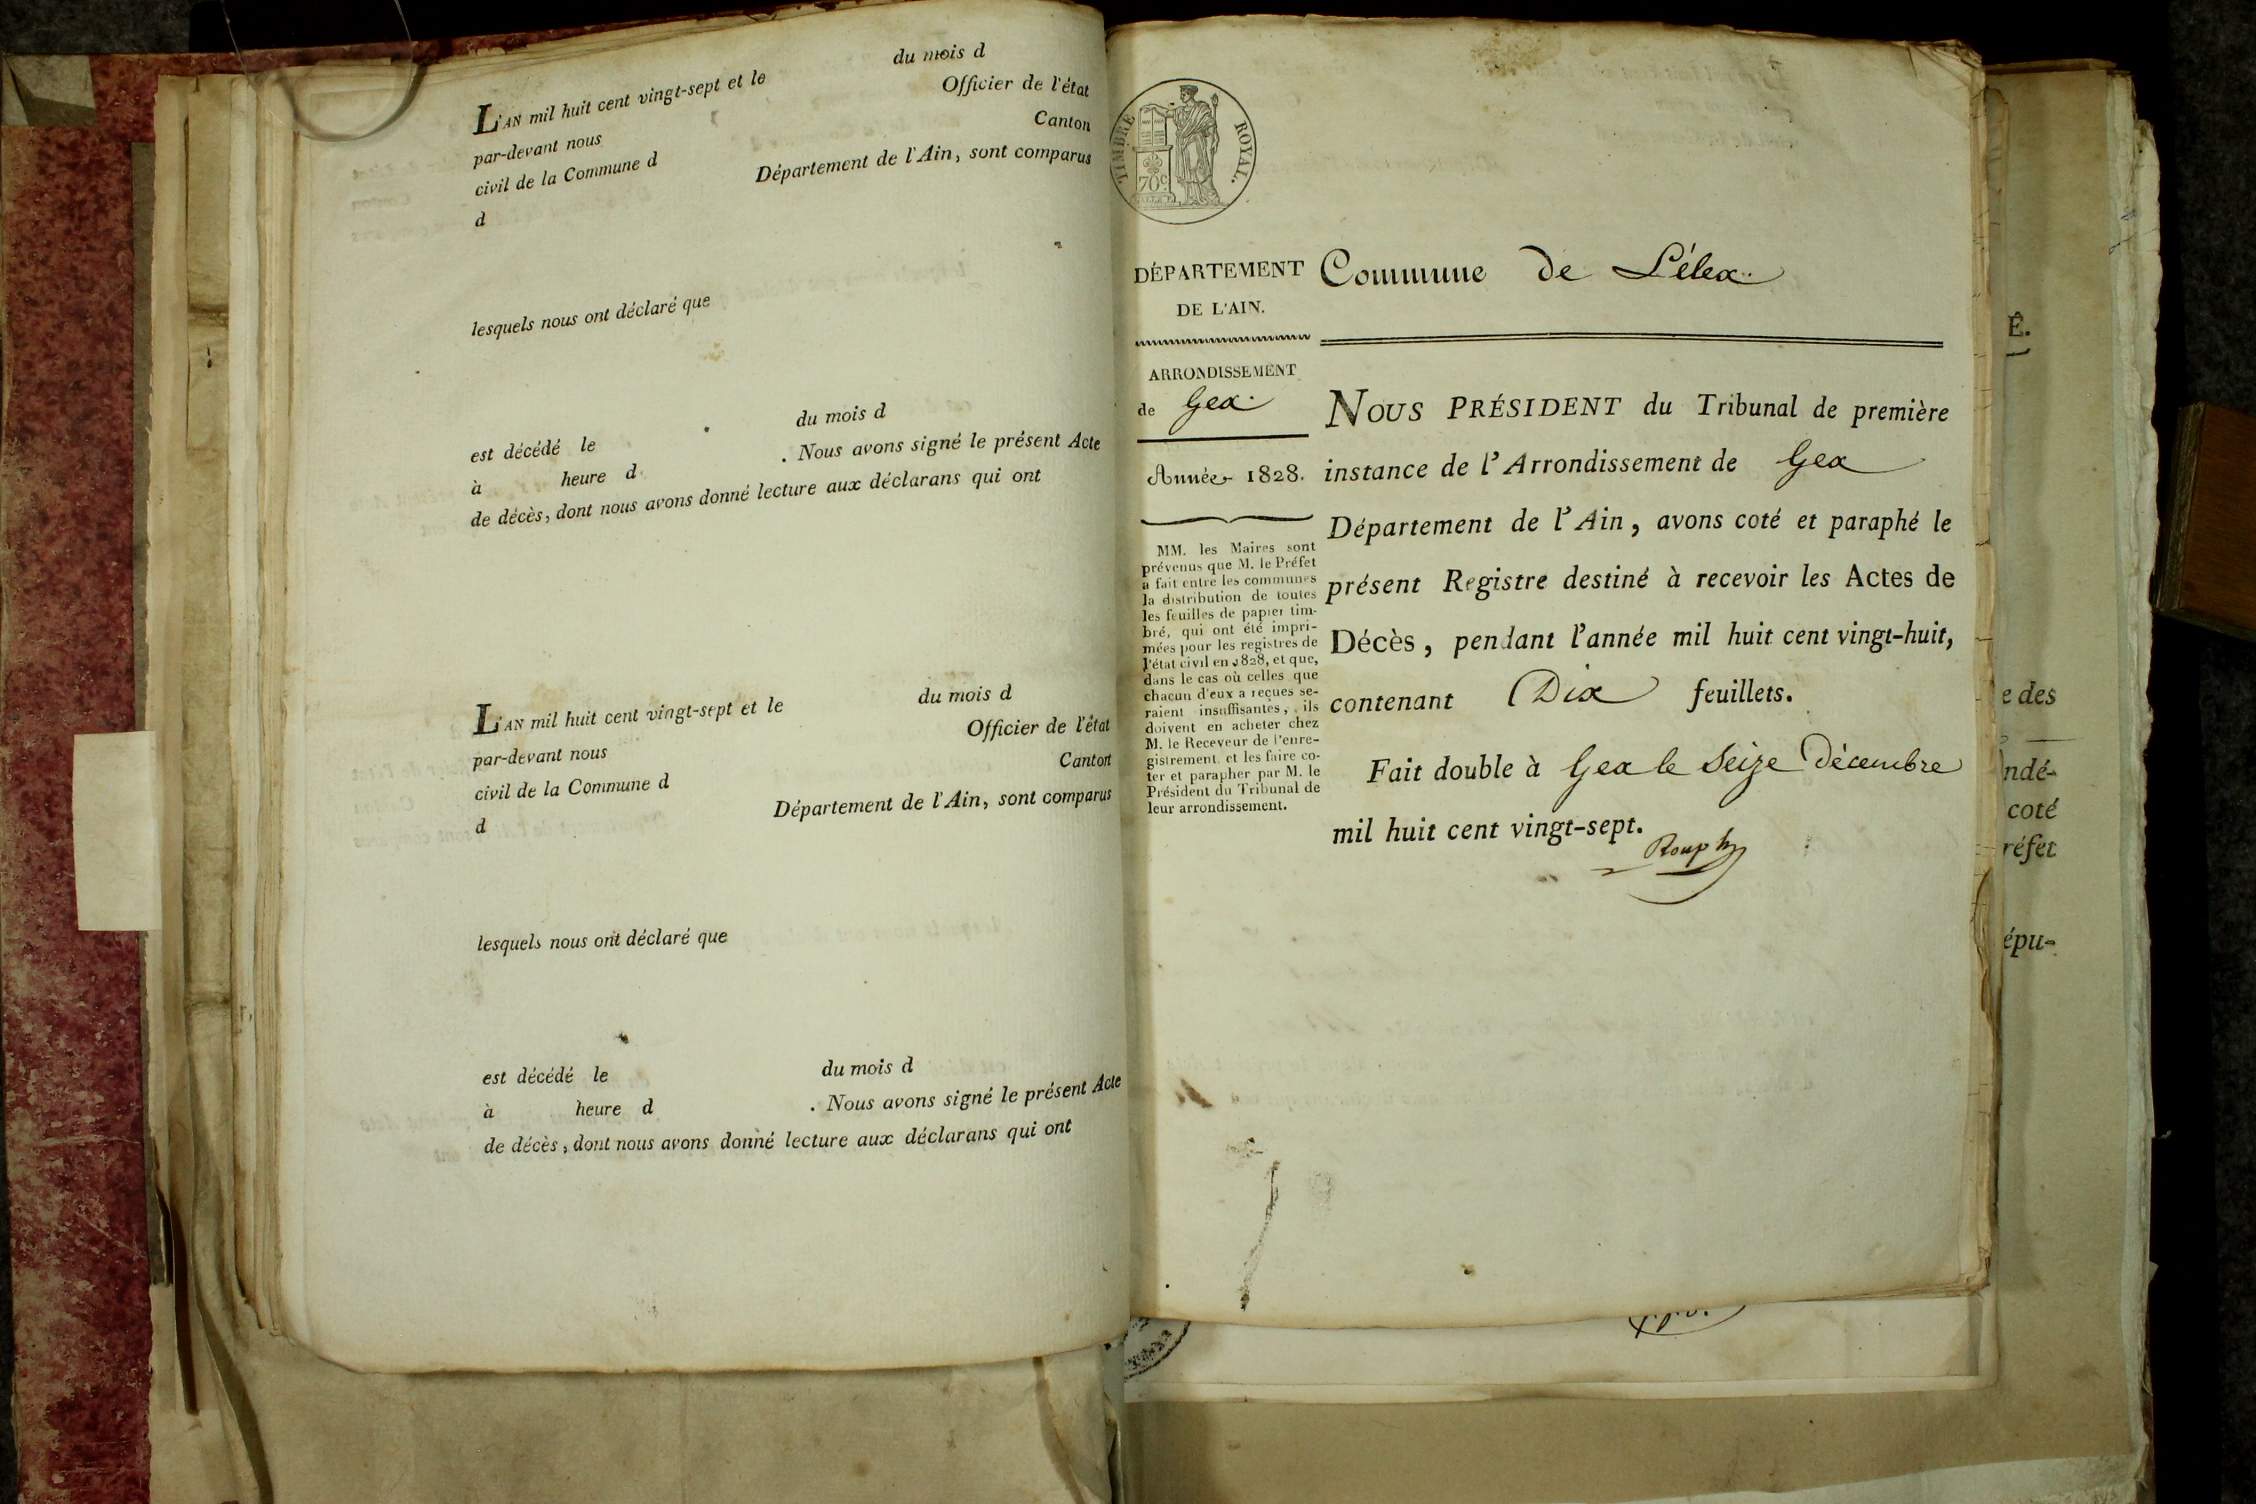 L'AN mil huit cent vingt-sept et le du mois d
par-devant nous Officier de l'état
civil de la Commune d Canton
d Département de l'Ain, sont comparus
lesquels nous ont déclaré que
est décédé le du mois d
à heure d . Nous avons signé le présent Acte
de décès, dont nous avons donné lecture aux déclarans qui ont
L'AN mil huit cent vingt-sept et le du mois d
par-devant nous Officier de l'état
civil de la Commune d Canton
d Département de l'Ain, sont comparus
lesquels nous ont déclaré que
est décédé le du mois d
à heure d . Nous avons signé le présent Acte
de décès, dont nous avons donné lecture aux déclarans qui ont
TIMBRE ROYAL.
70c
DÉPARTEMENT
DE L'AIN.
ARRONDISSEMENT
de Gex.
Année 1828.
MM. les Maires sont
prévenus que M. le Préfet
a fait entre les communes
la distribution de toutes
les feuilles de papier tim-
bré, qui ont été impri-
mées pour les registres de
l'état civil en 1828, et que,
dans le cas où celles que
chacun d'eux a reçues se-
raient insuffisantes, ils
doivent en acheter chez
M. le Receveur de l'enre-
gistrement et les faire co-
ter et parapher par M. le
Président du Tribunal de
leur arrondissement.
Commune de Lélex
NOUS PRÉSIDENT du Tribunal de première
instance de l'Arrondissement de Gex
Département de l'Ain, avons coté et paraphé le
présent Registre destiné à recevoir les Actes de
Décès, pendant l'année mil huit cent vingt-huit,
contenant Dix feuillets.
Fait double à Gex le Seize Décembre
mil huit cent vingt-sept.
É.
e des
ndé-
coté
réfet
épu-